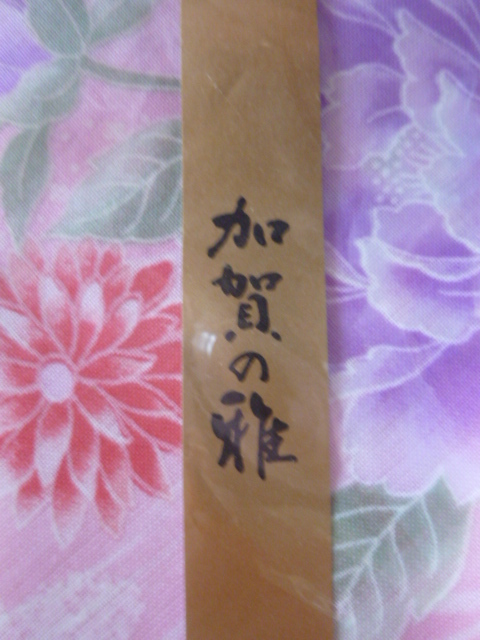 加賀の雅